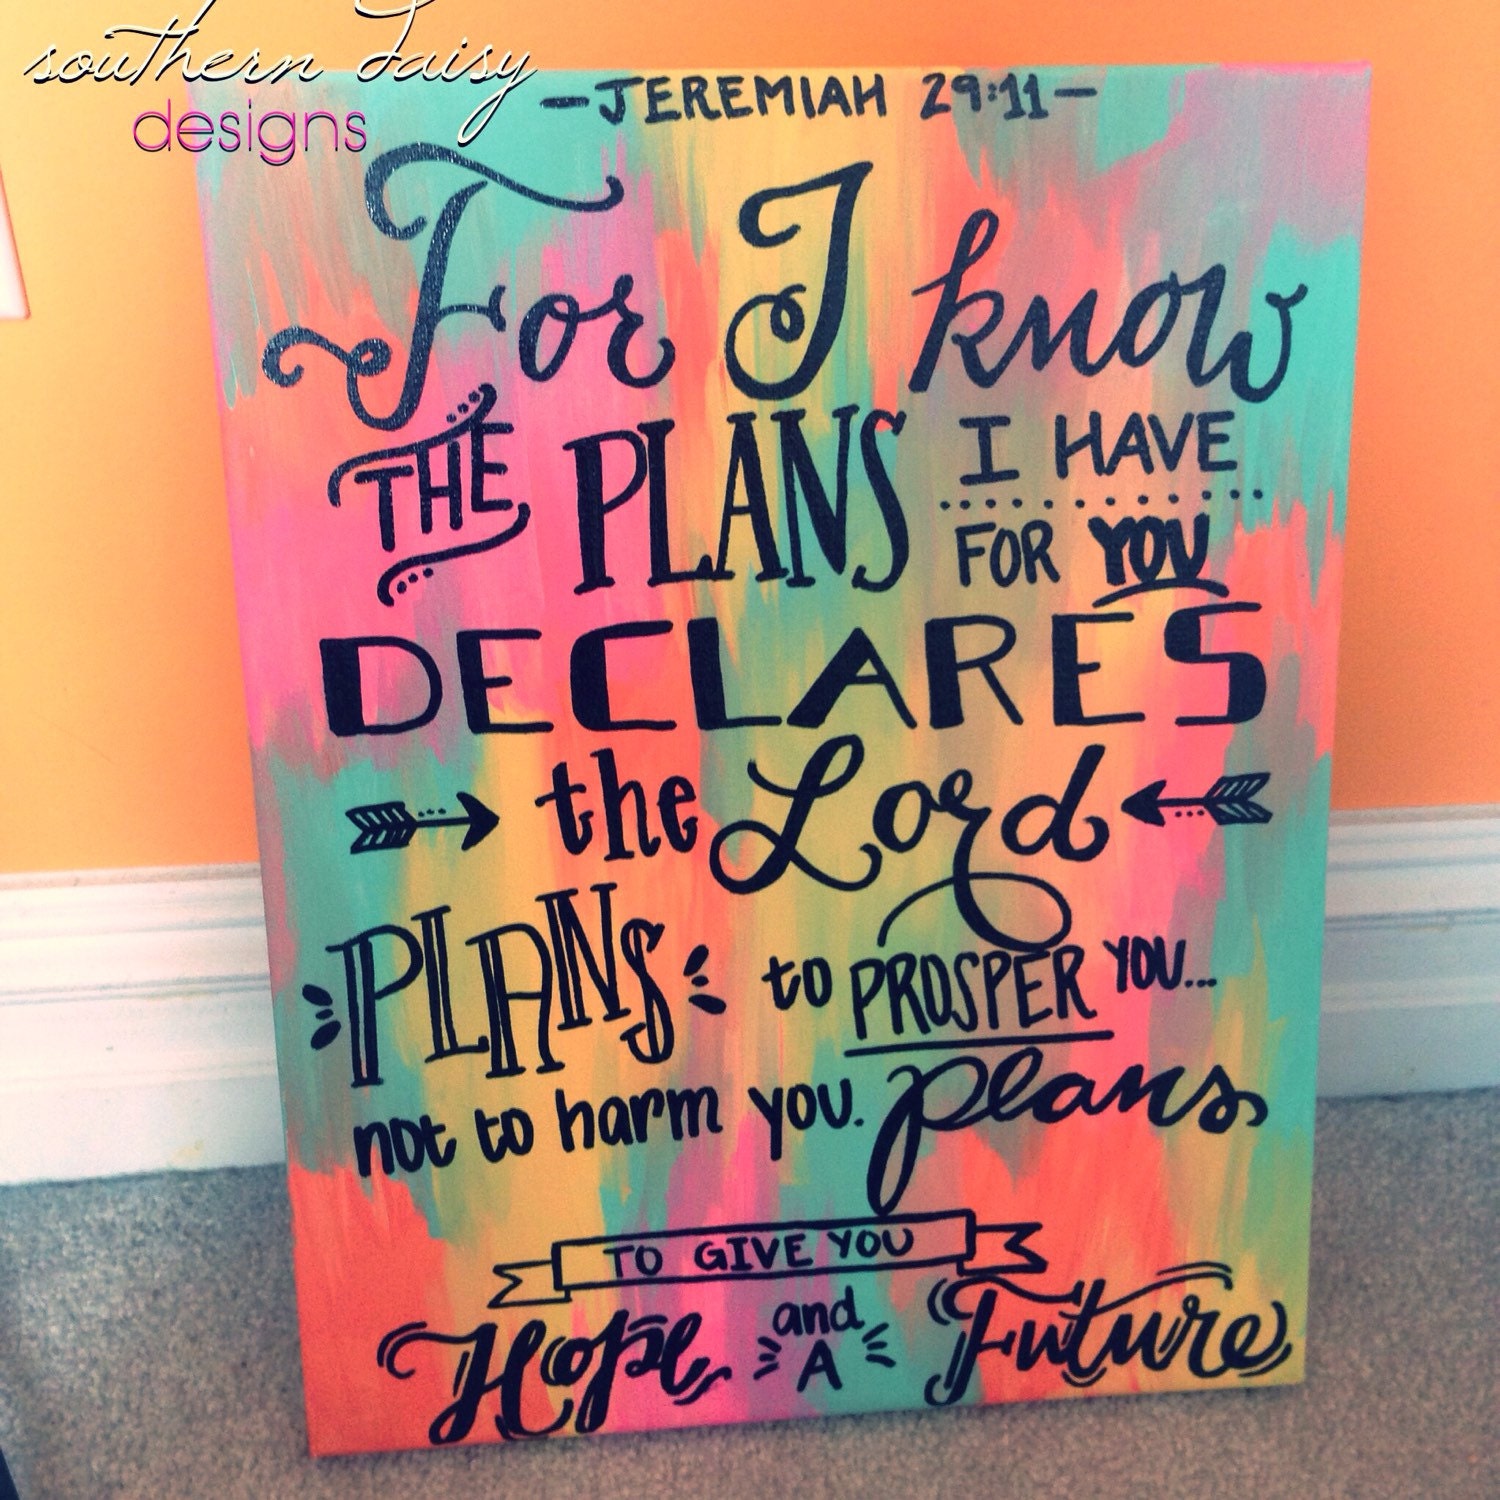 southern daisy
designs
—JEREMIAH 29:11—
For I know
THE PLANS I HAVE
FOR YOU
DECLARES
the Lord
PLANS to PROSPER YOU...
not to harm you. plans
TO GIVE YOU
Hope and A Future